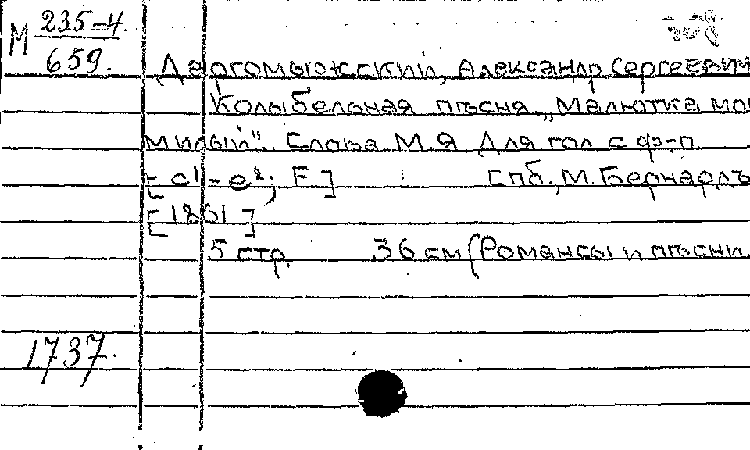 М 235-4
659.
Даргомыжский, Александр Сергеевич
Колыбельная пѣсня „Малютка мой
милый". Слова М.Я Для гол с ф-п.
[c¹-e²; F] Спб., М. Бернардъ
[1861]
5 стр. 36 см (Романсы и пѣсни
1737.